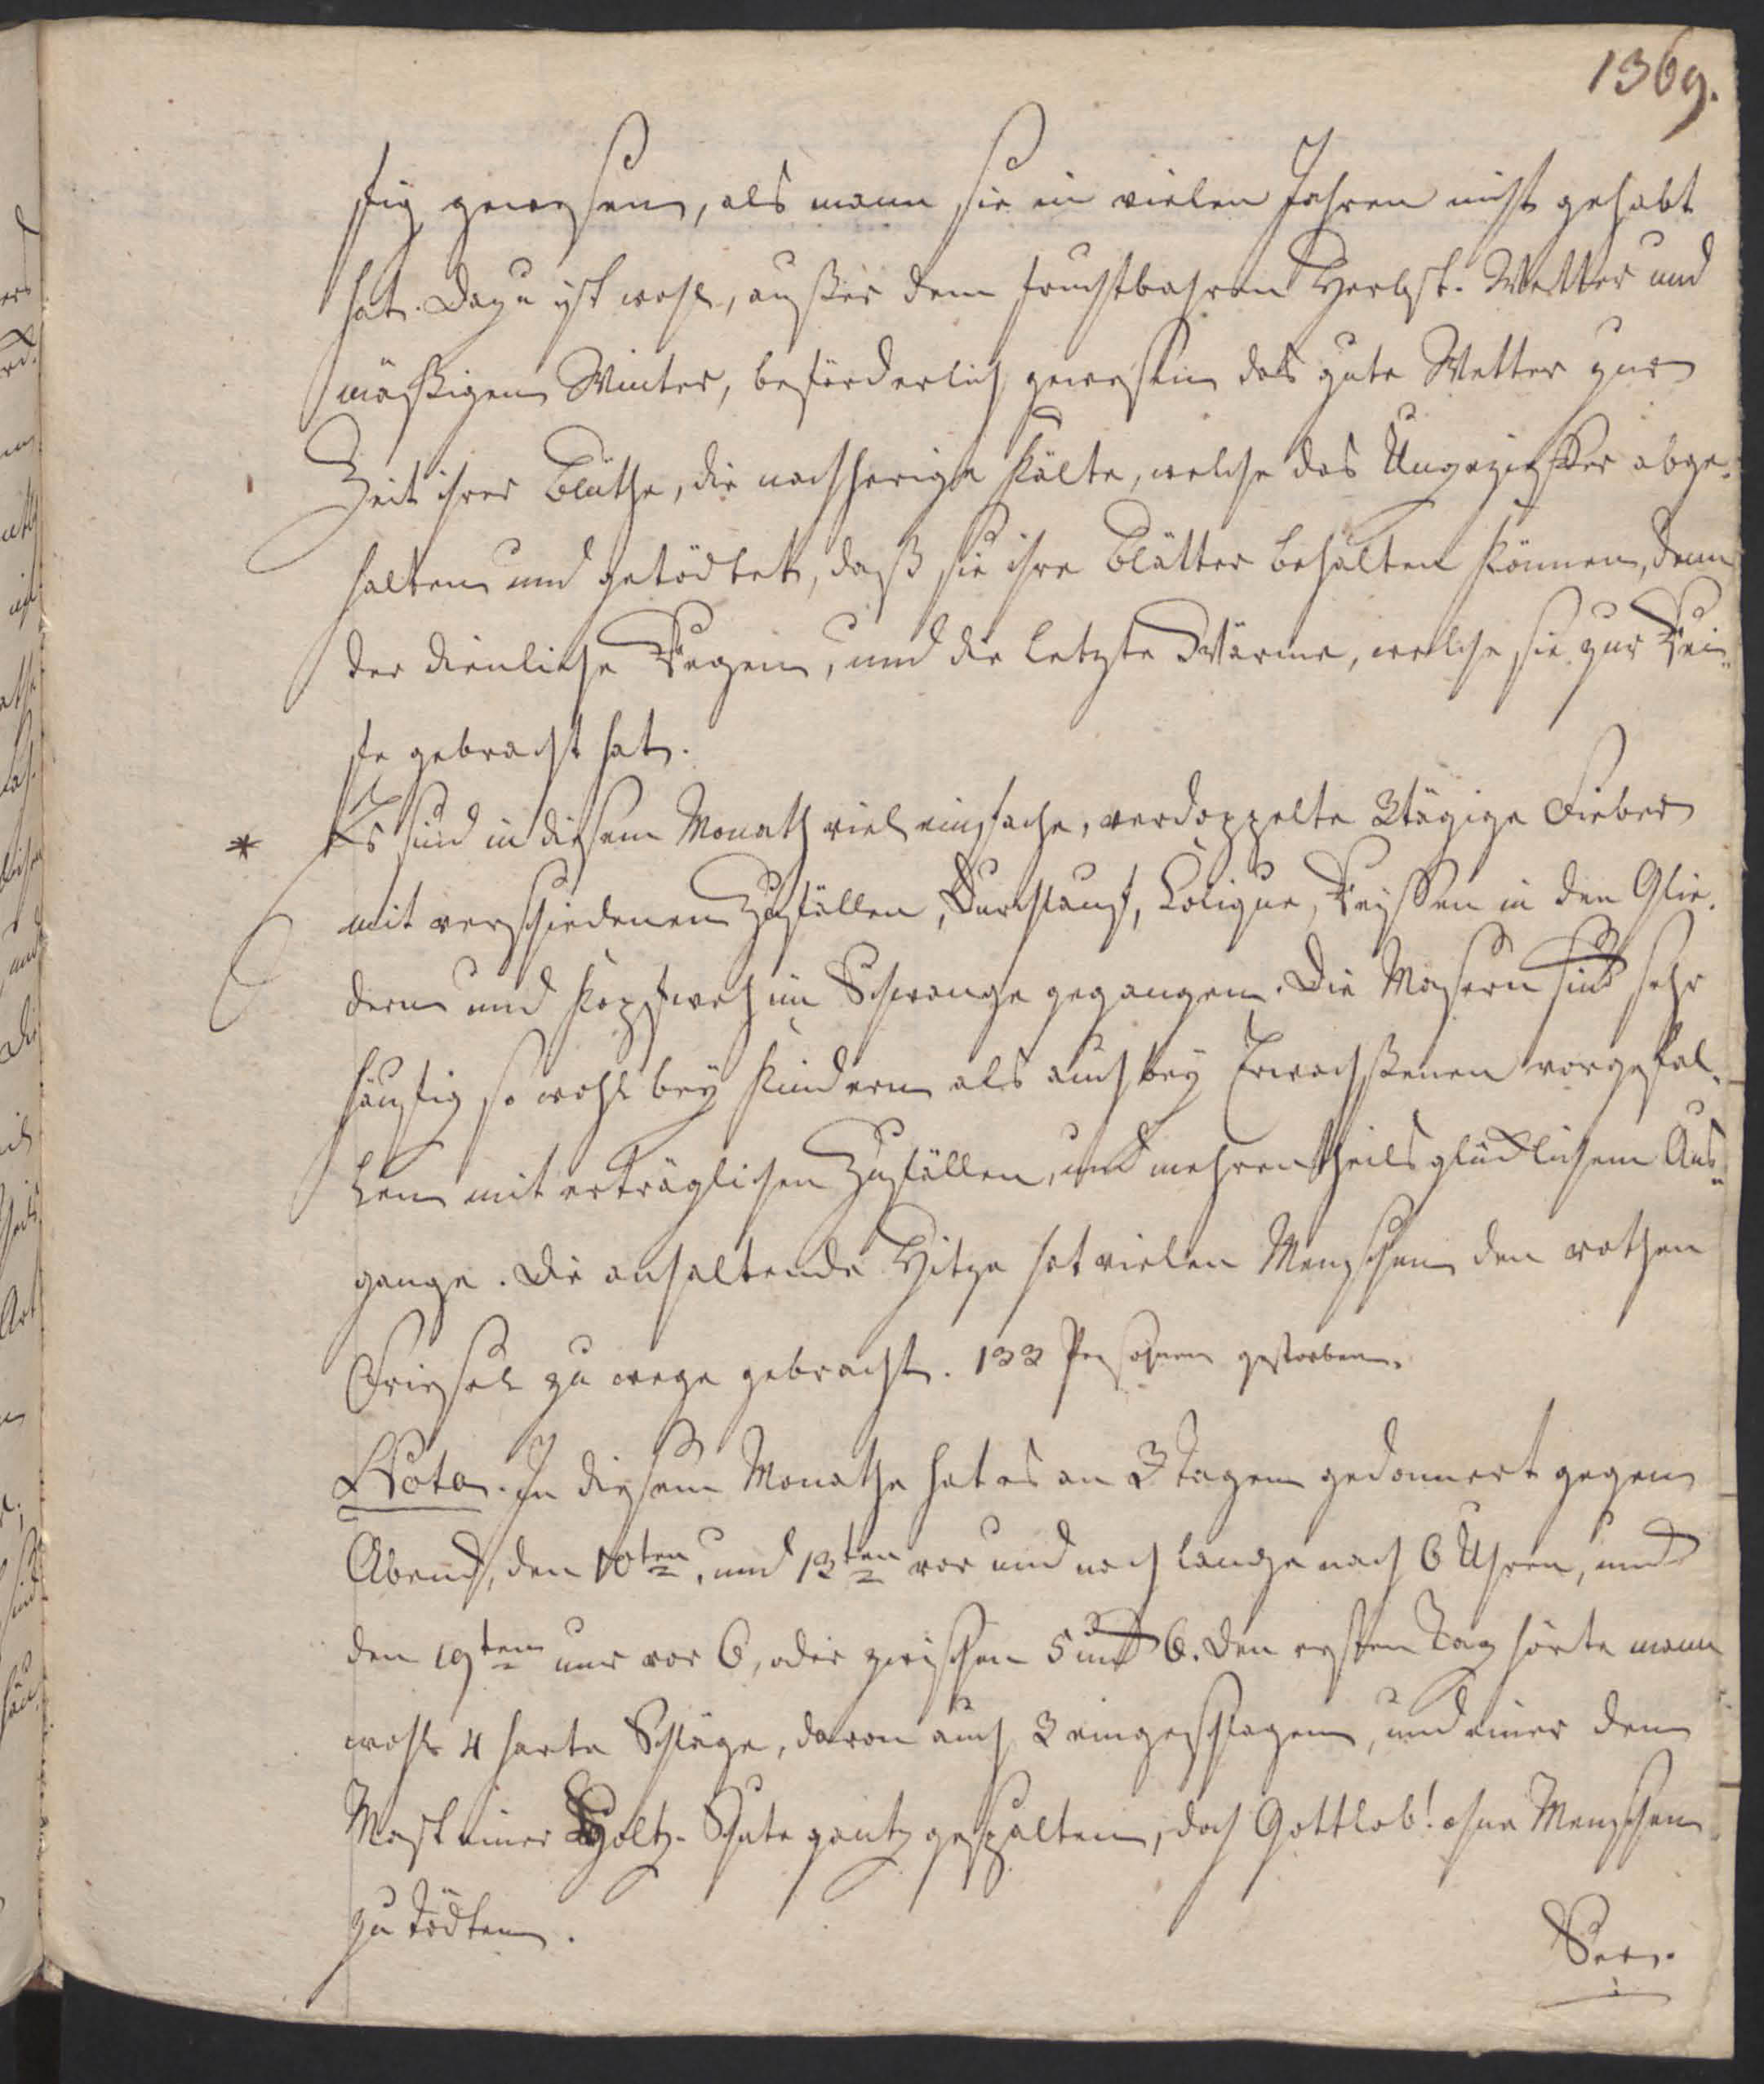 1369.
fig gewesen, als mann sie in vielen Jahren nicht gehabt
hat. Dazu ist wohl, außer dem fruchtbahren Herbst-Wetter und
mäßigen Winter, beförderlich gewesen das gute Wetter zur
Zeit ihrer Blüthe, die nachherige Kälte, welche das Ungeziffer abge-
halten und getödtet, daß sie ihre Blätter behalten können, denn
der dienliche Regen, und die letzte Wärme, welche sie zur Rei-
fe gebracht hat.
* Es sind in diesem Monath viel einfache, verdoppelte 3tägige Fieber
mit verschiedenen Zufällen, Durchlauf, Colique, Reyssen in den Glie-
dern und Kopfweh im Schwange gegangen. Die Masern sind sehr
häufig so wohl bey Kindern als auch bey Erwachßenen vorgefal-
len mit erträglichen Zufällen, und mehrentheils glücklichem Aus-
gange. Die anhaltende Hitze hat vielen Menschen den rothen
Friesel zu wege gebracht. 133 Persohnen gestorben.
Nota. In diesem Monathe hat es an 3 Tagen gedonnert gegen
Abend, den 10ten, und 13ten vor und noch lange nach 6 Uhren, und
den 19ten nur vor 6, oder zwischen 5 und 6. Den ersten Tag hörte mann
wohl 4 harte Schläge, davon auch 3 eingeschlagen, und einer den
Mast einer Holtz-Schute gantz gespalten, doch Gottlob! ohne Menschen
zu tödten.